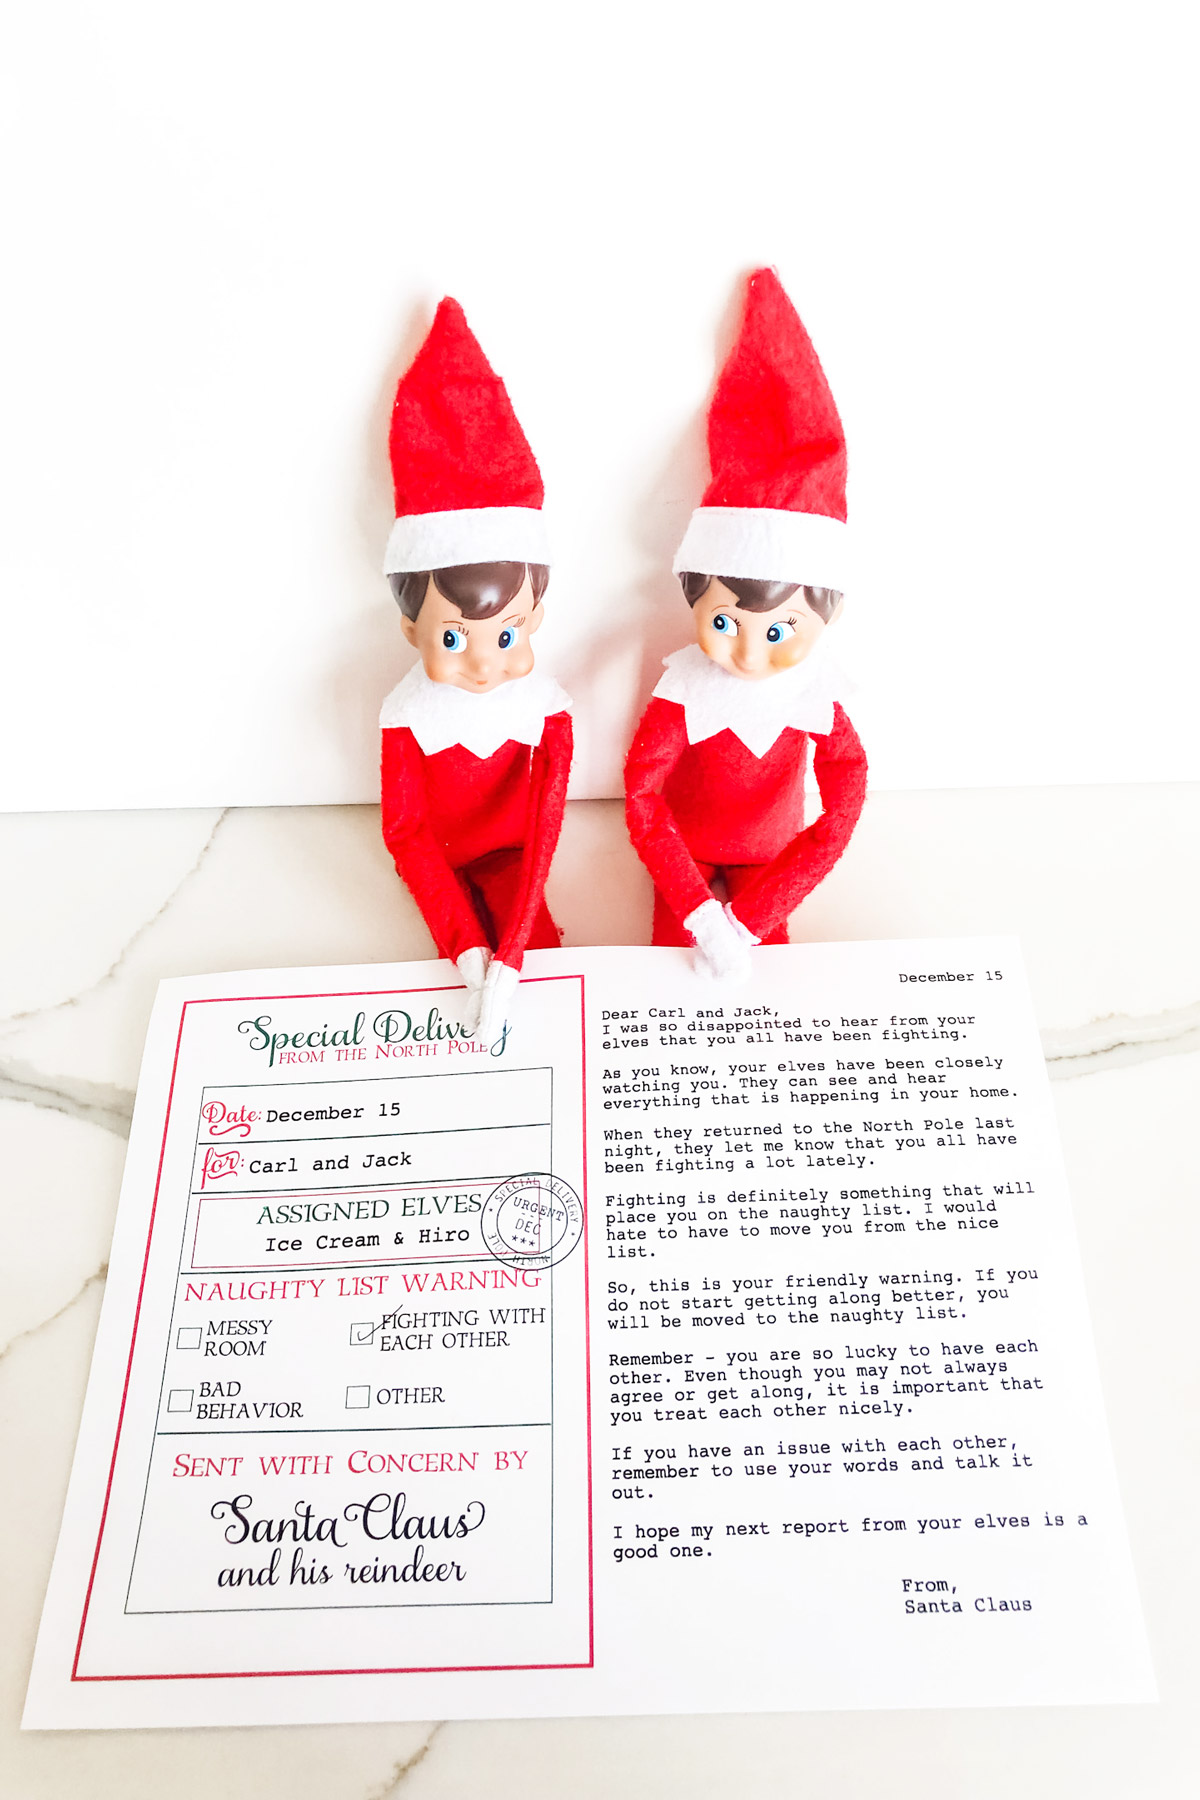 Special Delivery
FROM THE NORTH POLE
Date: December 15
for: Carl and Jack
ASSIGNED ELVES
Ice Cream & Hiro
SPECIAL DELIVERY
URGENT
DEC
***
NORTH POLE
NAUGHTY LIST WARNING
MESSY
ROOM
FIGHTING WITH
EACH OTHER
BAD
BEHAVIOR
OTHER
SENT WITH CONCERN BY
Santa Claus
and his reindeer
December 15
Dear Carl and Jack,
I was so disappointed to hear from your
elves that you all have been fighting.
As you know, your elves have been closely
watching you. They can see and hear
everything that is happening in your home.
When they returned to the North Pole last
night, they let me know that you all have
been fighting a lot lately.
Fighting is definitely something that will
place you on the naughty list. I would
hate to have to move you from the nice
list.
So, this is your friendly warning. If you
do not start getting along better, you
will be moved to the naughty list.
Remember – you are so lucky to have each
other. Even though you may not always
agree or get along, it is important that
you treat each other nicely.
If you have an issue with each other,
remember to use your words and talk it
out.
I hope my next report from your elves is a
good one.
From,
Santa Claus